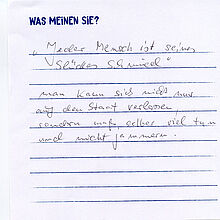 WAS MEINEN SIE?
„Jeder Mensch ist seines
Glückes Schmied"
man kann sich nicht nur
auf den Staat verlassen
sondern muß selber viel tun
und nicht jammern.